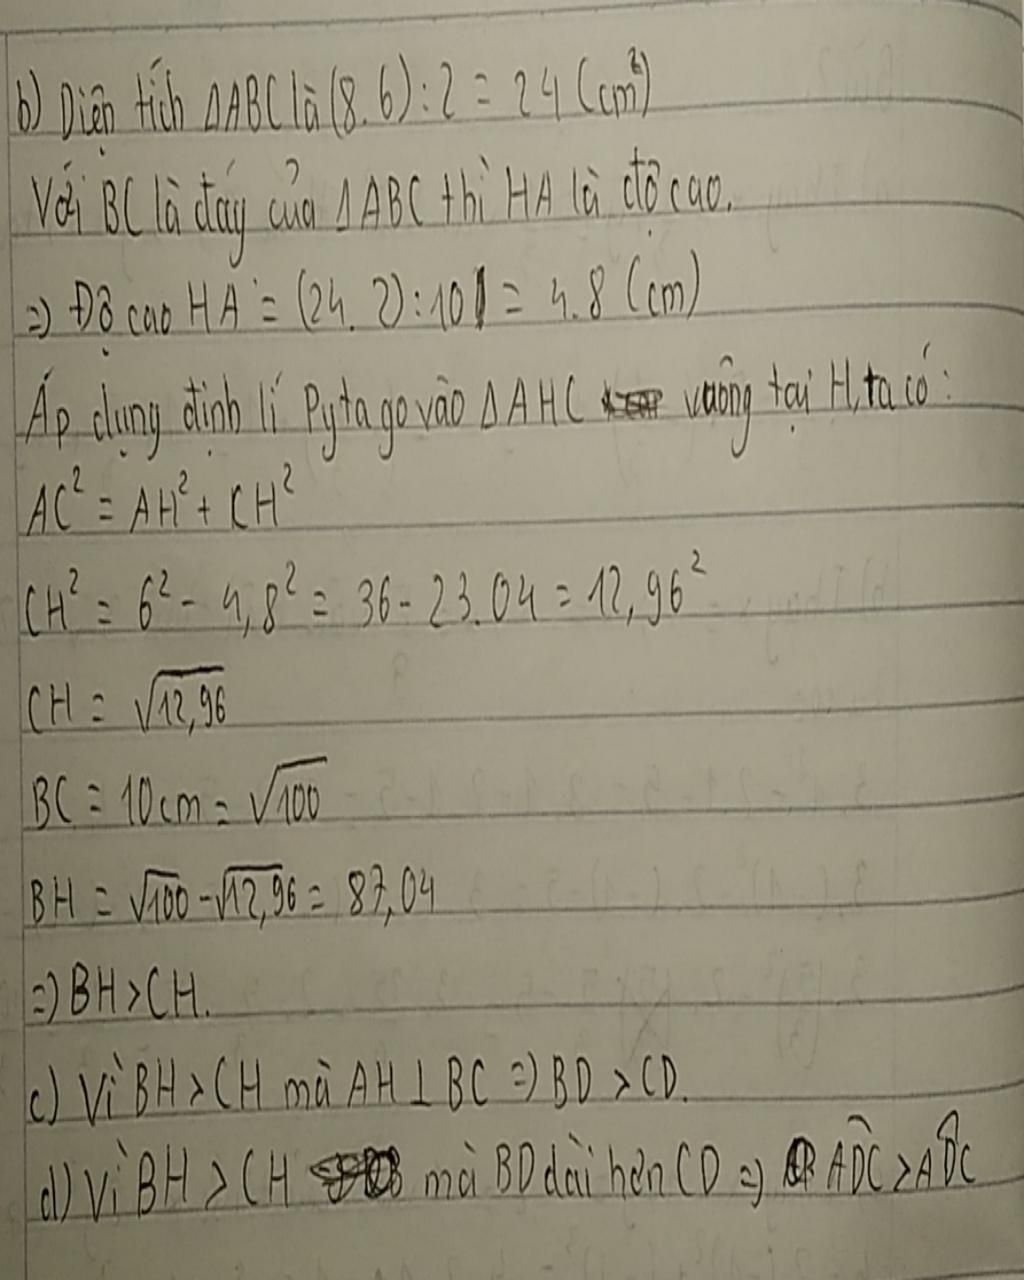 b) Diện tích ΔABC là (8.6):2 = 24 (cm²)
Với BC là đáy của ΔABC thì HA là độ cao.
=) Độ cao HA = (24.2):10 = 4.8 (cm)
Áp dụng định lí Pytago vào ΔAHC vuông tại H, ta có:
AC² = AH² + CH²
CH² = 6² - 4,8² = 36 - 23.04 = 12,96²
CH = √12,96
BC = 10cm = √100
BH = √100 - √12,96 = 87,04
=) BH > CH.
c) Vì BH > CH mà AH ⊥ BC =) BD > CD.
d) Vì BH > CH mà BD dài hơn CD =)